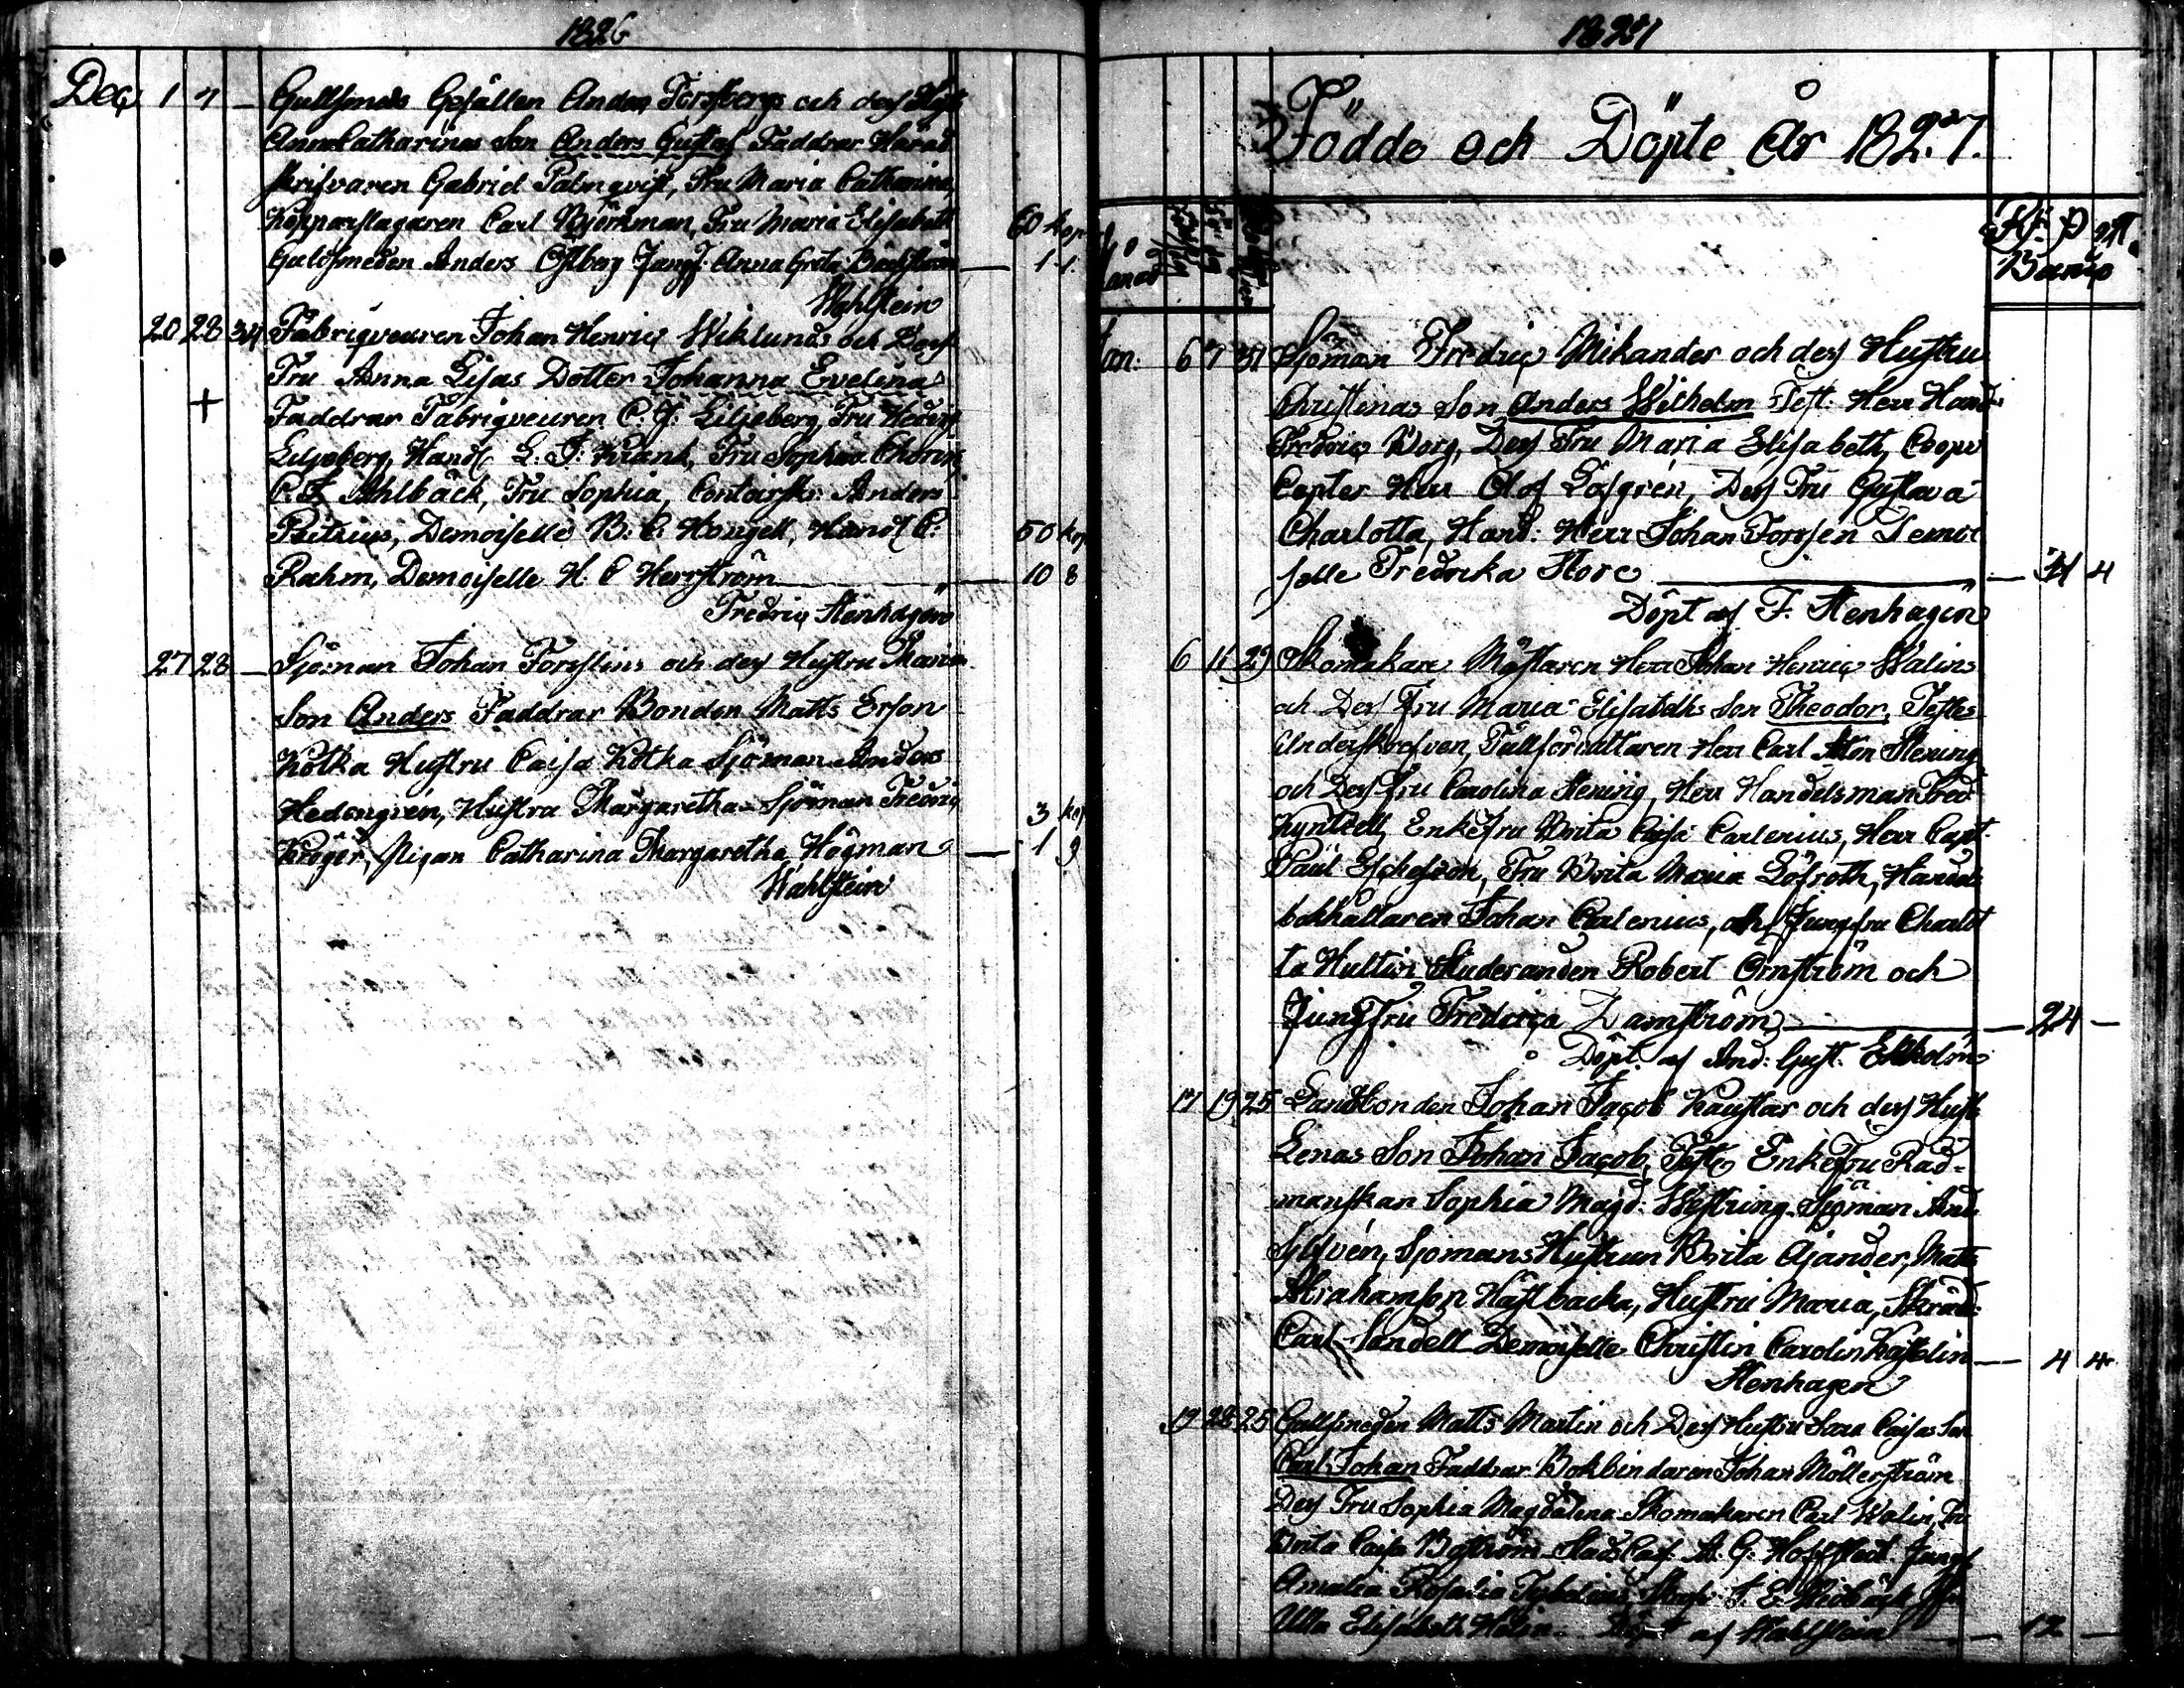 1826
Dec 1 7 — Gullsmeds Gesällen Anders Forsbergs och dess Hust
Anna Catharinas Son Anders Gustaf Faddrar Härad
skrifvaren Gabriel Palmqvist, Fru Maria Catharina,
Kopparslagaren Carl Björkman, Fru Maria Elisabeth 60 kop
Guldsmeden Anders Östberg Jungf. Anna Greta Bäckström — 1 1
Wahlstein
20 28 34 Fabriqveuren Johan Henric Wiklunds och Dess
Fru Anna Lisas Dotter Johanna Evelina
+ Faddrar Fabriqveuren C. G. Liljeberg, Fru Hedvig
Liljeberg, Handl. L. J. Krank, Fru Sophia
C. F. Ahlbäck, Fru Sophia, Contorsk: Anders
Petrius, Demoiselle B. C. Hougell, Handl C. 50 kop
Rahm, Demoiselle H. C Herrström — 10 8
Fredric Stenhagen
27 28 — Sjöman Johan Forsslins och dess Hustru Marias
Son Anders Faddrar Bonden Matts Erson
Kotka Hustru Caisa Kotka Sjöman Anders
Hedengrén, Hustru Margaretha Sjöman Fredric 3 kop
Kröger, Pigan Catharina Margaretha Högman — 1 9
Wahlstein
1827
Födde och Döpte År 1827.
Månad
Barnets
Jan: 6 7 31 Sjöman Fredric Mikander och dess Hustru
Christinas Son Anders Wilhelm Test. Herr Hand:
Fredric Borg, Dess Fru Maria Elisabeth, Coopv
Capten Herr Olof Löfgrén, Dess Fru Gustava
Charlotta, Hand: Herr Johan Forssén Demoi
selle Fredrika Hore — 4
Döpt af F. Stenhagen
6 11 29 Skomakare Mästaren Herr Johan Henric Walins
och Dess Fru Maria Elisabeths Son Theodor, Testes
Underskrefven, Tullförvaltaren Herr Carl Stening
och Dess Fru Carolina Stening, Herr Handelsman Fred
Kyntzell, Enkefru Brita Caisa Carlenius, Herr Capt.
Paul Fru Brita Maria Löfroth, Handels
bokhållaren Johan Carlenius, och Jungfru Charlot
ta Hultin Studeranden Robert Örnström och
Jungfru Fredrica Damström — 24 —
Döpt af And: Gust. Ekholm
17 19 25 Landbonden Johan Jacob Kaustar och dess Hust
Lenas Son Johan Jacob, Testes Enkefru Råd-
manskan Sophia Magd. Westring. Sjöman And
Sylvén, Sjömans Hustrun Brita Ajander, Matts
Abrahamson Hästbacka, Hustru Maria, Skrädd:
Carl Sandell Demoiselle Christin Carolin Kastelin — 4 4
Stenhagen
19 22 25 Gullsmeden Matts Martin och Dess Hustru Sara Caisas Son
Carl Johan Faddrar Bokbindaren Johan Möllerström
Dess Fru Sophia Magdalena Skomakaren Carl Walin, Fru
Brita Caisa Byström A. G. Hoffstedt Jungf
Amalia Rosalia
Ulla Elisabeth Holm Döpt af Wahlstein — 12 —